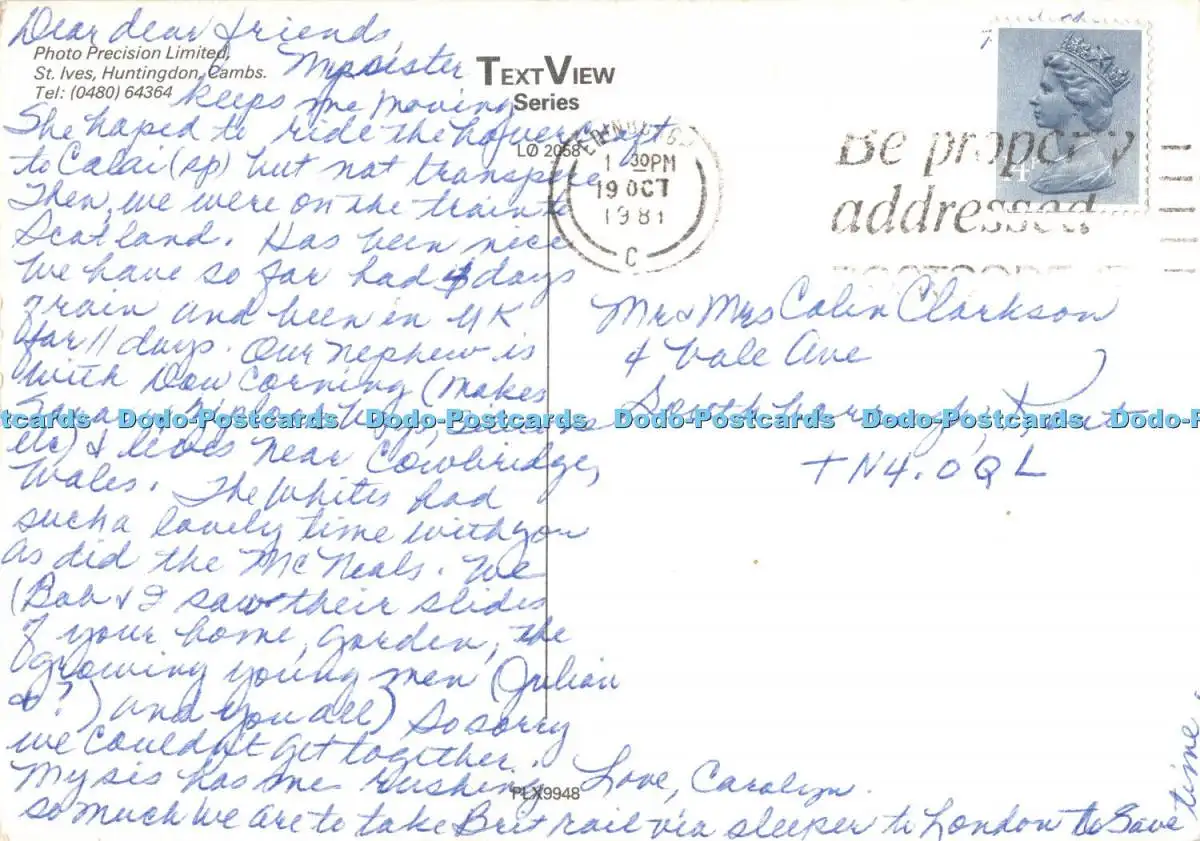 Dear dear friends,
Photo Precision Limited,
St. Ives, Huntingdon, Cambs.
Tel: (0480) 64364
TEXTVIEW
Series
LO 2058
My sister
keeps me moving
She hoped to ride the hovercraft
to Calai (sp) but not transpire
Then, we were on the train to
Scotland. Has been nice
We have so far had 4 days
rain and been in UK
for 11 days. Our nephew is
with Dow Corning (makes
etc) & lives near Cowbridge,
Wales. The Whites had
such a lovely time with you
as did the McNeals. We
(Bob & I saw their slides
of your home, garden, the
growing young men (Julian
& ?) and you all) So sorry
we couldn't get together.
My sis has me rushing
so much we are to take Brit rail via sleeper to London to save
time.
Love, Carolyn.
PLX9948
EDINBURGH
1 30PM
19 OCT
1981
C
Be properly
addressed
Mr & Mrs Colin Clarkson
4 Vale Ave
Southborough, Kent
TN4.0QL
Dodo-Postcards Dodo-Postcards Dodo-Postcards Dodo-Postcards Dodo-Postcards